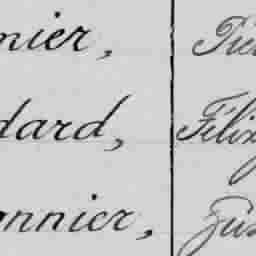 nier, Pie
dard, Félix
onnier, Jus